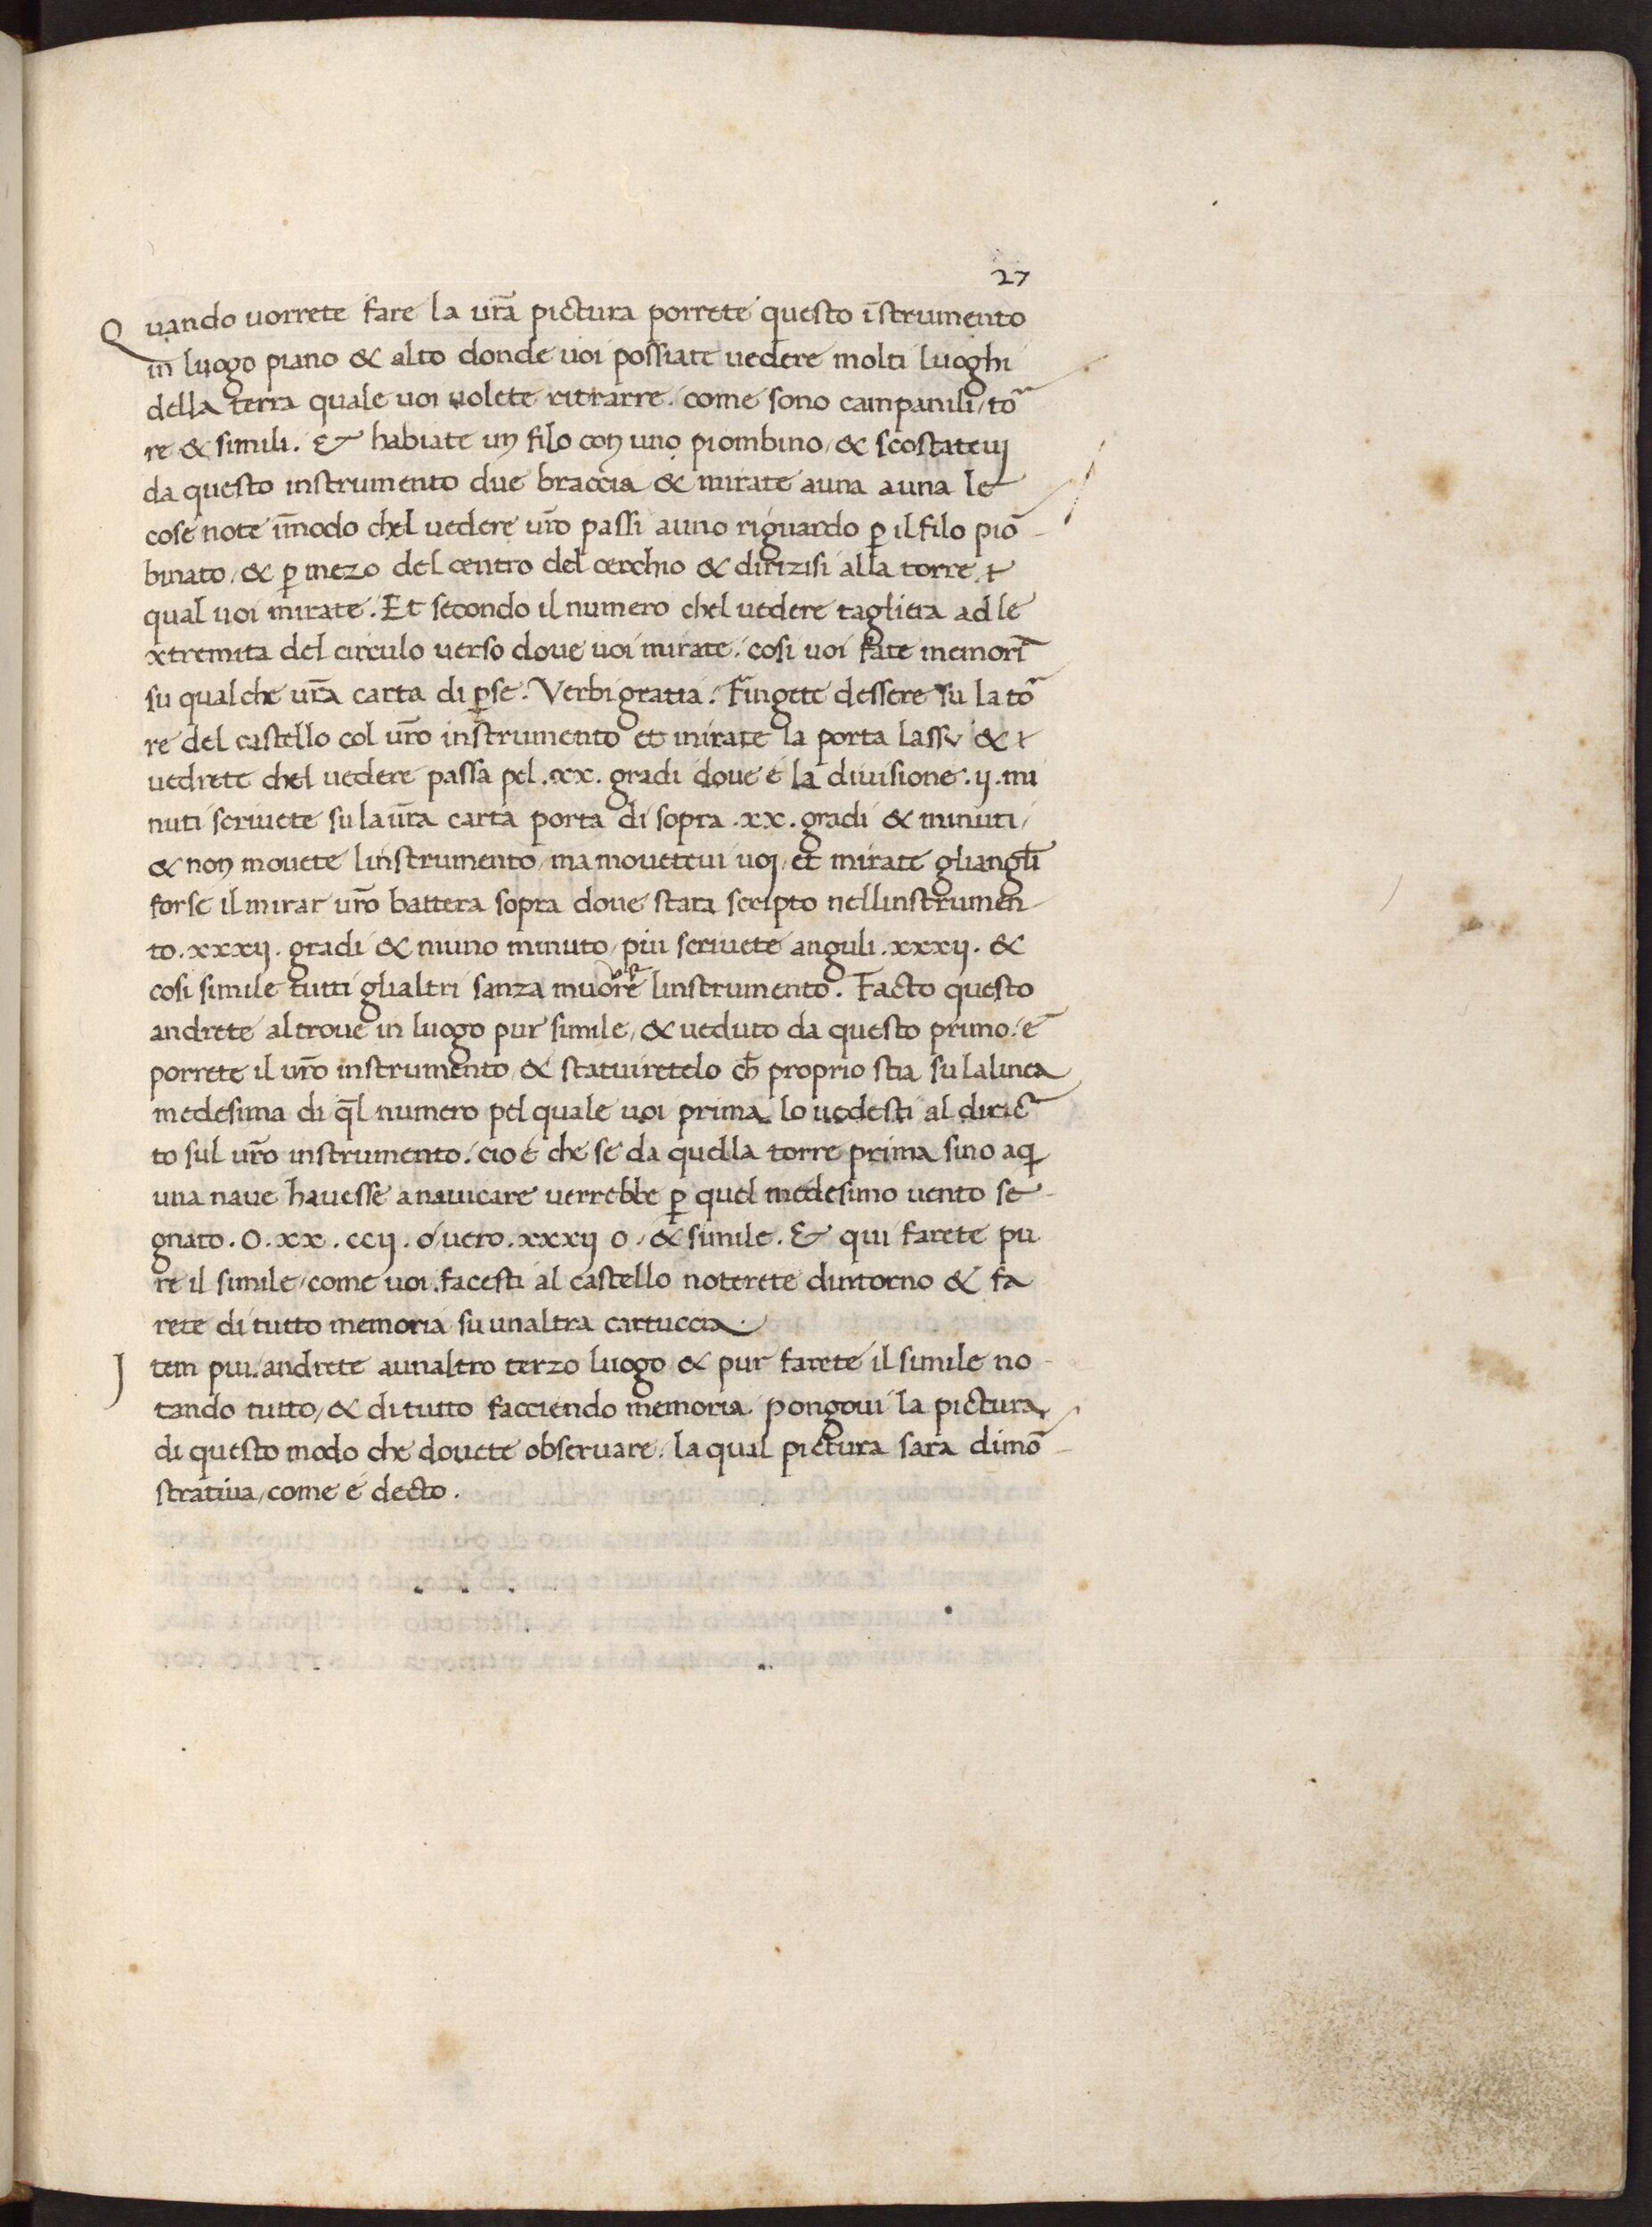 27
Quando uorrete fare la ur̄a pictura porrete questo īstrumento
in luogo piano & alto donde uoi possiate uedere molti luoghi
della terra quale uoi uolete ritrarre. come sono campanili / to
re & simili. & habiate un filo con uno piombino / & scostateuj
da questo instrumento due braccia & mirate auna auna le
cose note īmodo chel uedere ur̄o passi auno riguardo ꝑ il filo piō
binato / & ꝑ mezo del centro del cerchio & dirizisi alla torre
qual uoi mirate. Et secondo il numero chel uedere tagliera ad le
xtremita del circulo uerso doue uoi mirate. cosi uoi fate memori
su qualche ur̄a carta di ꝑse. Verbigratia. Fingete dessere su la to
re del castello col ur̄o instrumento et mirate la porta lassu &
uedrete chel uedere passa pel .xx. gradi doue é la diuisione .ij. mi
nuti scriuete su la ur̄a carta porta di sopra .xx. gradi & minuti /
& non mouete linstrumento / ma moueteui uoj / et mirate gliangl̄i
forse il mirar ur̄o battera sopra doue stara scripto nellinstrumen
to .xxxij. gradi & niuno minuto / piu scriuete anguli .xxxij. &
cosi simile tutti glialtri sanza muouere linstrumento. Facto questo
andrete altroue in luogo pur simile / & ueduto da questo primo. é
porrete il ur̄o instrumento & statuiretelo ch̄ proprio stia su lalinea
medesima di q̄l numero pel quale uoi prima lo uedesti al diric
to sul ur̄o instrumento. cio é che se da quella torre prima sino aqi
una naue hauesse a nauicare uerrebbe ꝑ quel medesimo uento se-
gnato .O.xx.ccij. ó uero .xxxij O. & simile. & qui farete pu
re il simile / come uoi facesti al castello noterete dintorno & fa
rete di tutto memoria su unaltra cartuccia.
Item piu. andrete aunaltro terzo luogo & pur farete il simile no-
tando tutto / & di tutto facciendo memoria. pongoui la pictura
di questo modo che douete obseruare. la qual pictura sara dimō
stratiua / come é decto.